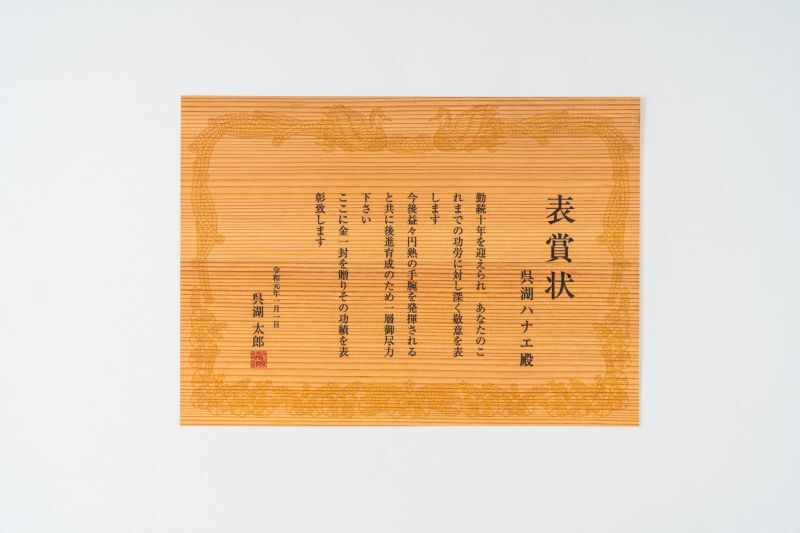 表賞状
呉湖ハナエ殿
勤続十年を迎えられ　あなたのこ
れまでの功労に対し深く敬意を表
します
今後益々円熟の手腕を発揮される
と共に後進育成のため一層御尽力
下さい
ここに金一封を贈りその功績を表
彰致します
令和元年一月一日
呉湖 太郎